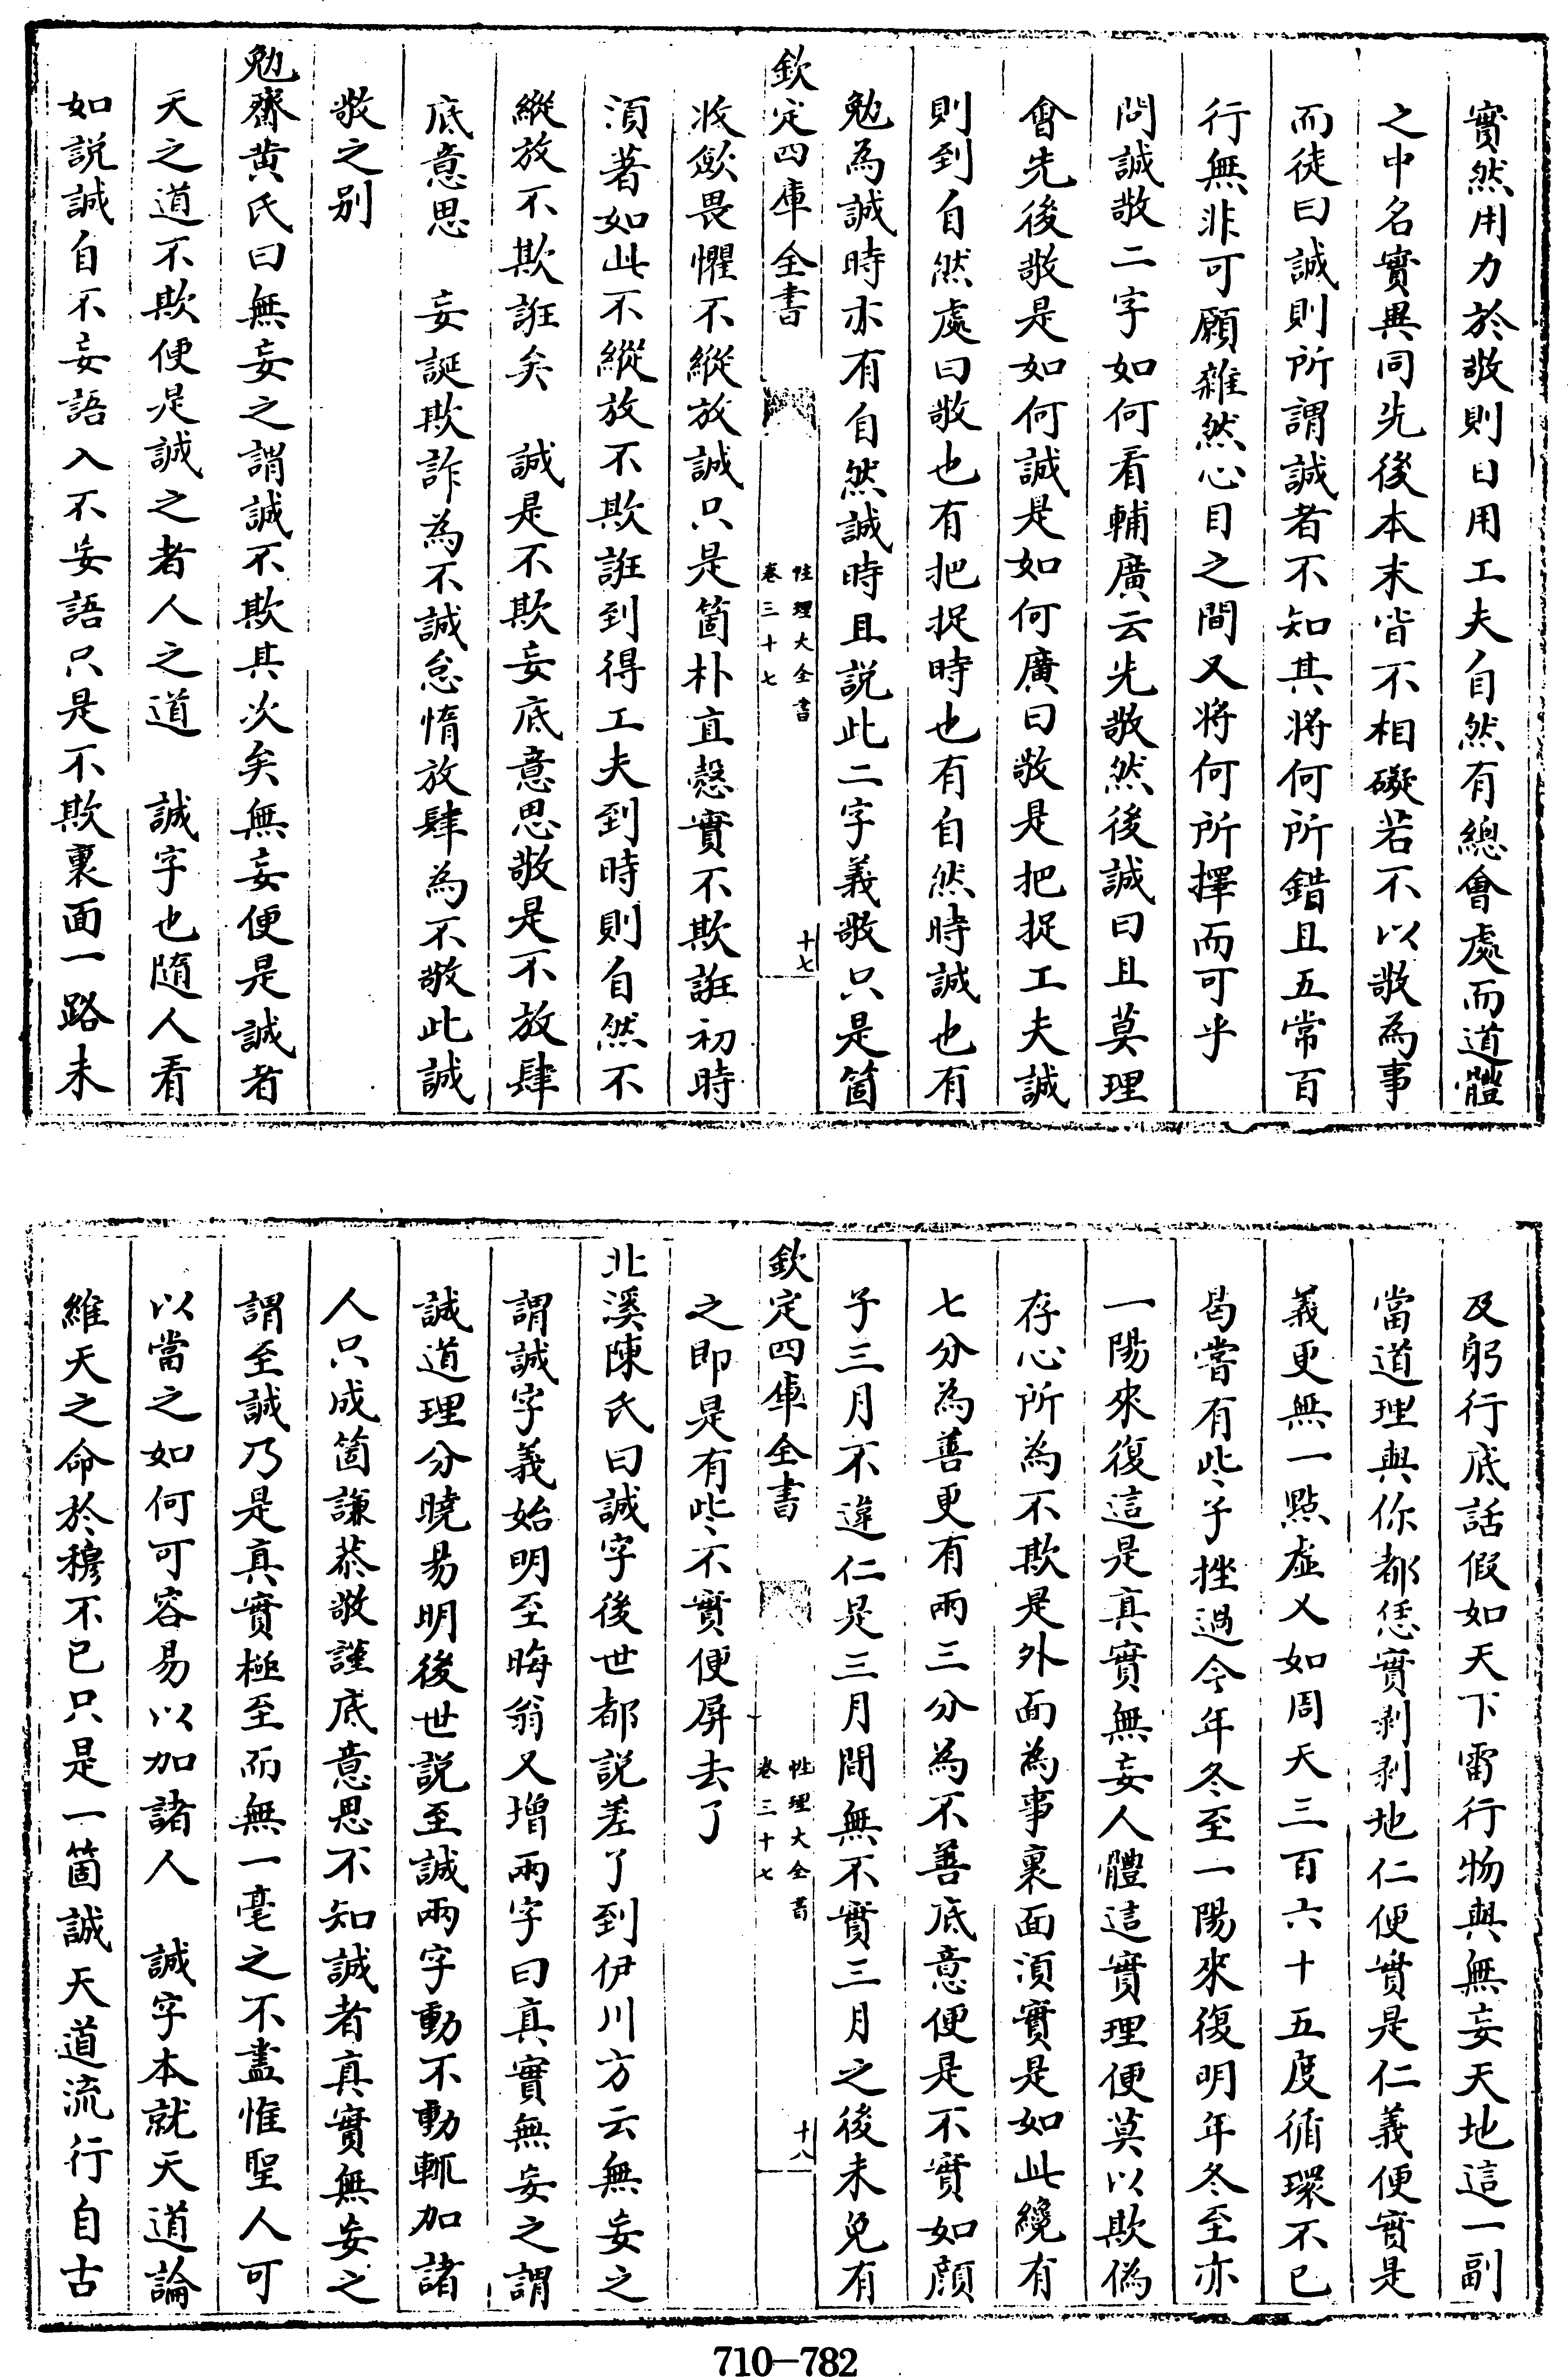 實然用力於敬則日用工夫自然有總會處而道體
之中名實異同先後本末皆不相礙若不以敬為事
而徒曰誠則所謂誠者不知其將何所錯且五常百
行無非可願雖然心目之間又將何所擇而可乎
問誠敬二字如何看輔廣云先敬然後誠曰且莫理
會先後敬是如何誠是如何廣曰敬是把捉工夫誠
則到自然處曰敬也有把捉時也有自然時誠也有
勉為誠時亦有自然誠時且説此二字義敬只是箇
欽定四庫全書
性理大全書
卷三十七
十七
收斂畏懼不縱放誠只是箇朴直慤實不欺誑初時
須著如此不縱放不欺誑到得工夫到時則自然不
縱放不欺誑矣 誠是不欺妄底意思敬是不放肆
底意思 妄誕欺詐為不誠怠惰放肆為不敬此誠
敬之别
勉齋黄氏曰無妄之謂誠不欺其次矣無妄便是誠者
天之道不欺便是誠之者人之道 誠字也隨人看
如説誠自不妄語入不妄語只是不欺裏面一路未
及躬行底話假如天下雷行物與無妄天地這一副
當道理與你都恁實剥剥地仁便實是仁義便實是
義更無一點虚又如周天三百六十五度循環不已
曷嘗有些子挫過今年冬至一陽來復明年冬至亦
一陽來復這是真實無妄人體這實理便莫以欺偽
存心所為不欺是外面為事裏面須實是如此纔有
七分為善更有兩三分為不善底意便是不實如顔
子三月不違仁是三月間無不實三月之後未免有
欽定四庫全書
性理大全書
卷三十七
十八
之即是有些不實便屏去了
北溪陳氏曰誠字後世都説差了到伊川方云無妄之
謂誠字義始明至晦翁又增兩字曰真實無妄之謂
誠道理分曉易明後世説至誠兩字動不動輒加諸
人只成箇謙恭敬謹底意思不知誠者真實無妄之
謂至誠乃是真實極至而無一毫之不盡惟聖人可
以當之如何可容易以加諸人 誠字本就天道論
維天之命於穆不已只是一箇誠天道流行自古
710—782